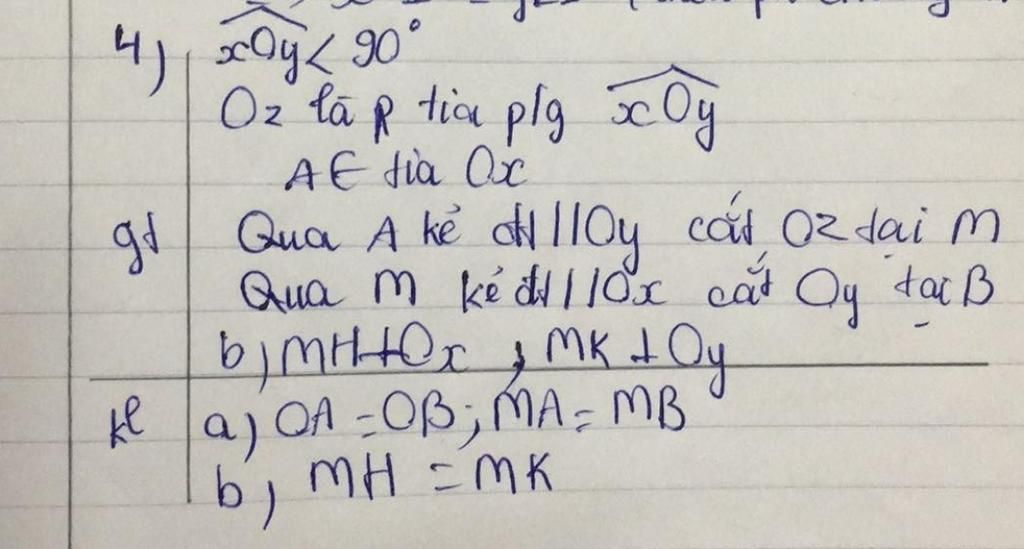 4) xOy < 90°
Oz là tia p/g xOy
A ∈ tia Ox
gt Qua A kẻ đt // Oy cắt Oz tại M
Qua M kẻ đt // Ox cắt Oy tại B
b, MH ⊥ Ox, MK ⊥ Oy
kl a) OA = OB; MA = MB
b, MH = MK